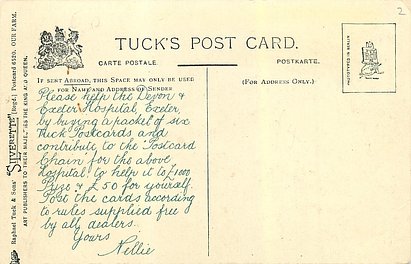 2
TUCK'S POST CARD.
CARTE POSTALE
POSTKARTE.
IF SENT ABROAD, THIS SPACE MAY ONLY BE USED
FOR NAME AND ADDRESS OF SENDER
(FOR ADDRESS ONLY.)
Please help the Devon &
Exeter Hospital, Exeter,
by buying a packet of six
Tuck Postcards and
contribute to the "Postcard
Chain" for the above
hospital to help it to £1000
Prize & £50 for yourself.
Post the cards according
to rules supplied free
by all dealers.
Yours
Nellie
Raphael Tuck & Sons' "SILVERETTE" (Regd.) Postcard 6530. OUR FARM.
ART PUBLISHERS TO THEIR MAJESTIES THE KING AND QUEEN.
PHOTOTYPED IN BERLIN